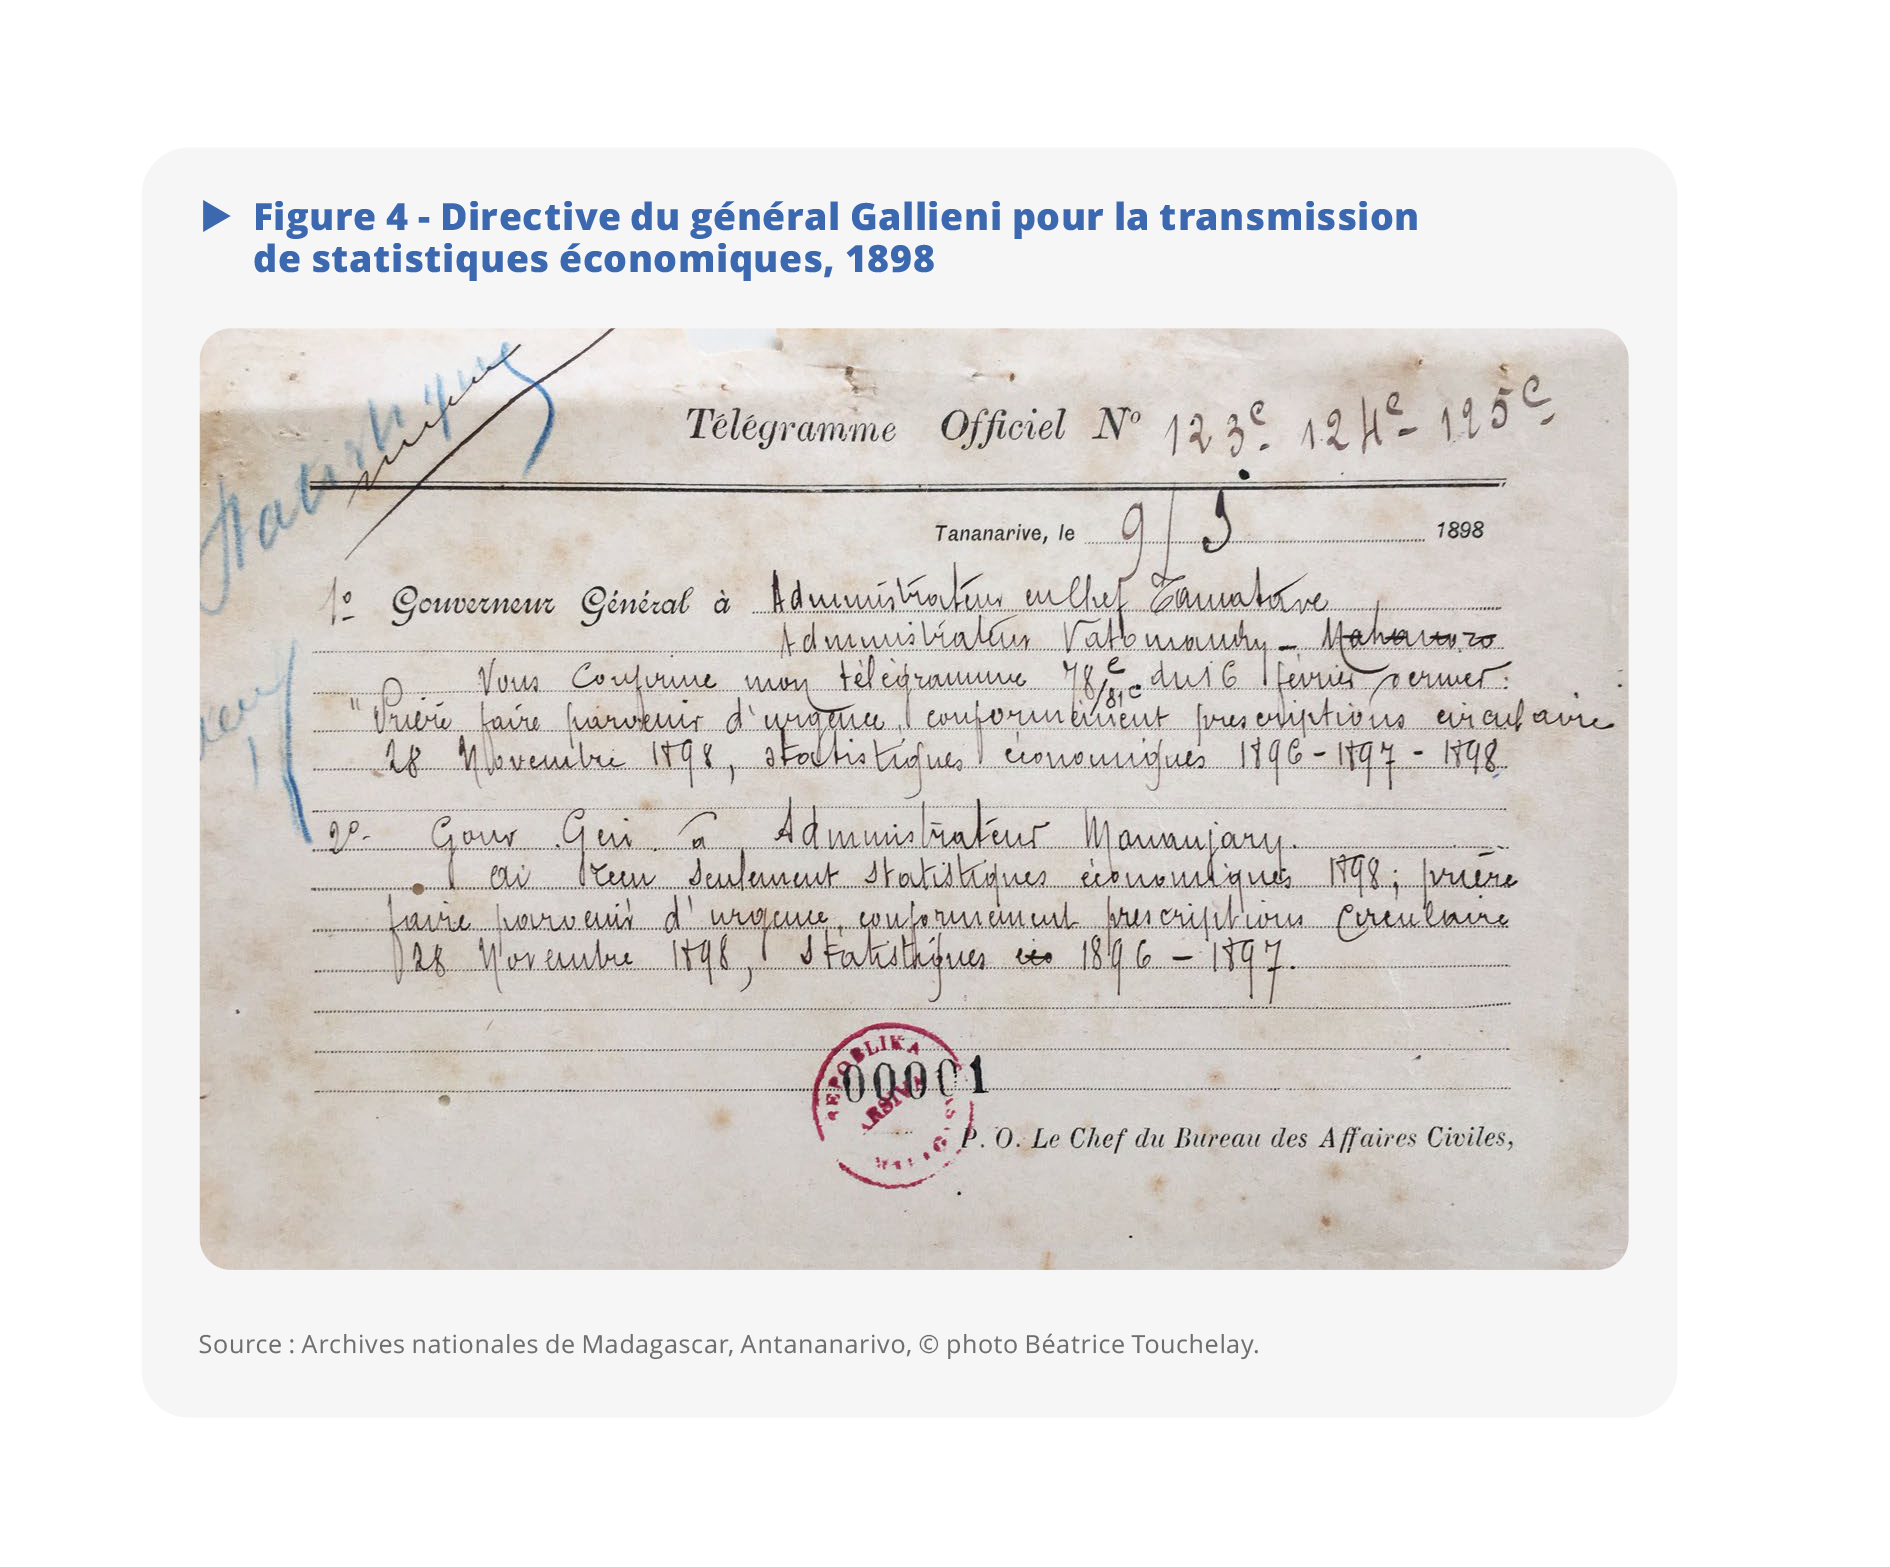 Figure 4 - Directive du général Gallieni pour la transmission
de statistiques économiques, 1898
Statistique
Télégramme Officiel Nº 123c. 124c- 125c-
Tananarive, le 9/3 1898
1º Gouverneur Général à Administrateur en Chef Tamatave
Administrateur Vatomandry - Mahanoro
Vous confirme mon télégramme 78c/81c du 16 février dernier:
"Prière faire parvenir d'urgence, conformément prescriptions circulaire
28 Novembre 1898, statistiques économiques 1896-1897-1898
2º- Gouv Gén à Administrateur Mananjary.
ai reçu seulement statistiques économiques 1898; prière
faire parvenir d'urgence, conformément prescriptions Circulaire
28 Novembre 1898, statistiques 1896-1897.
REPOBLIKA
ARSIVA
00001
P. O. Le Chef du Bureau des Affaires Civiles,
Source : Archives nationales de Madagascar, Antananarivo, © photo Béatrice Touchelay.